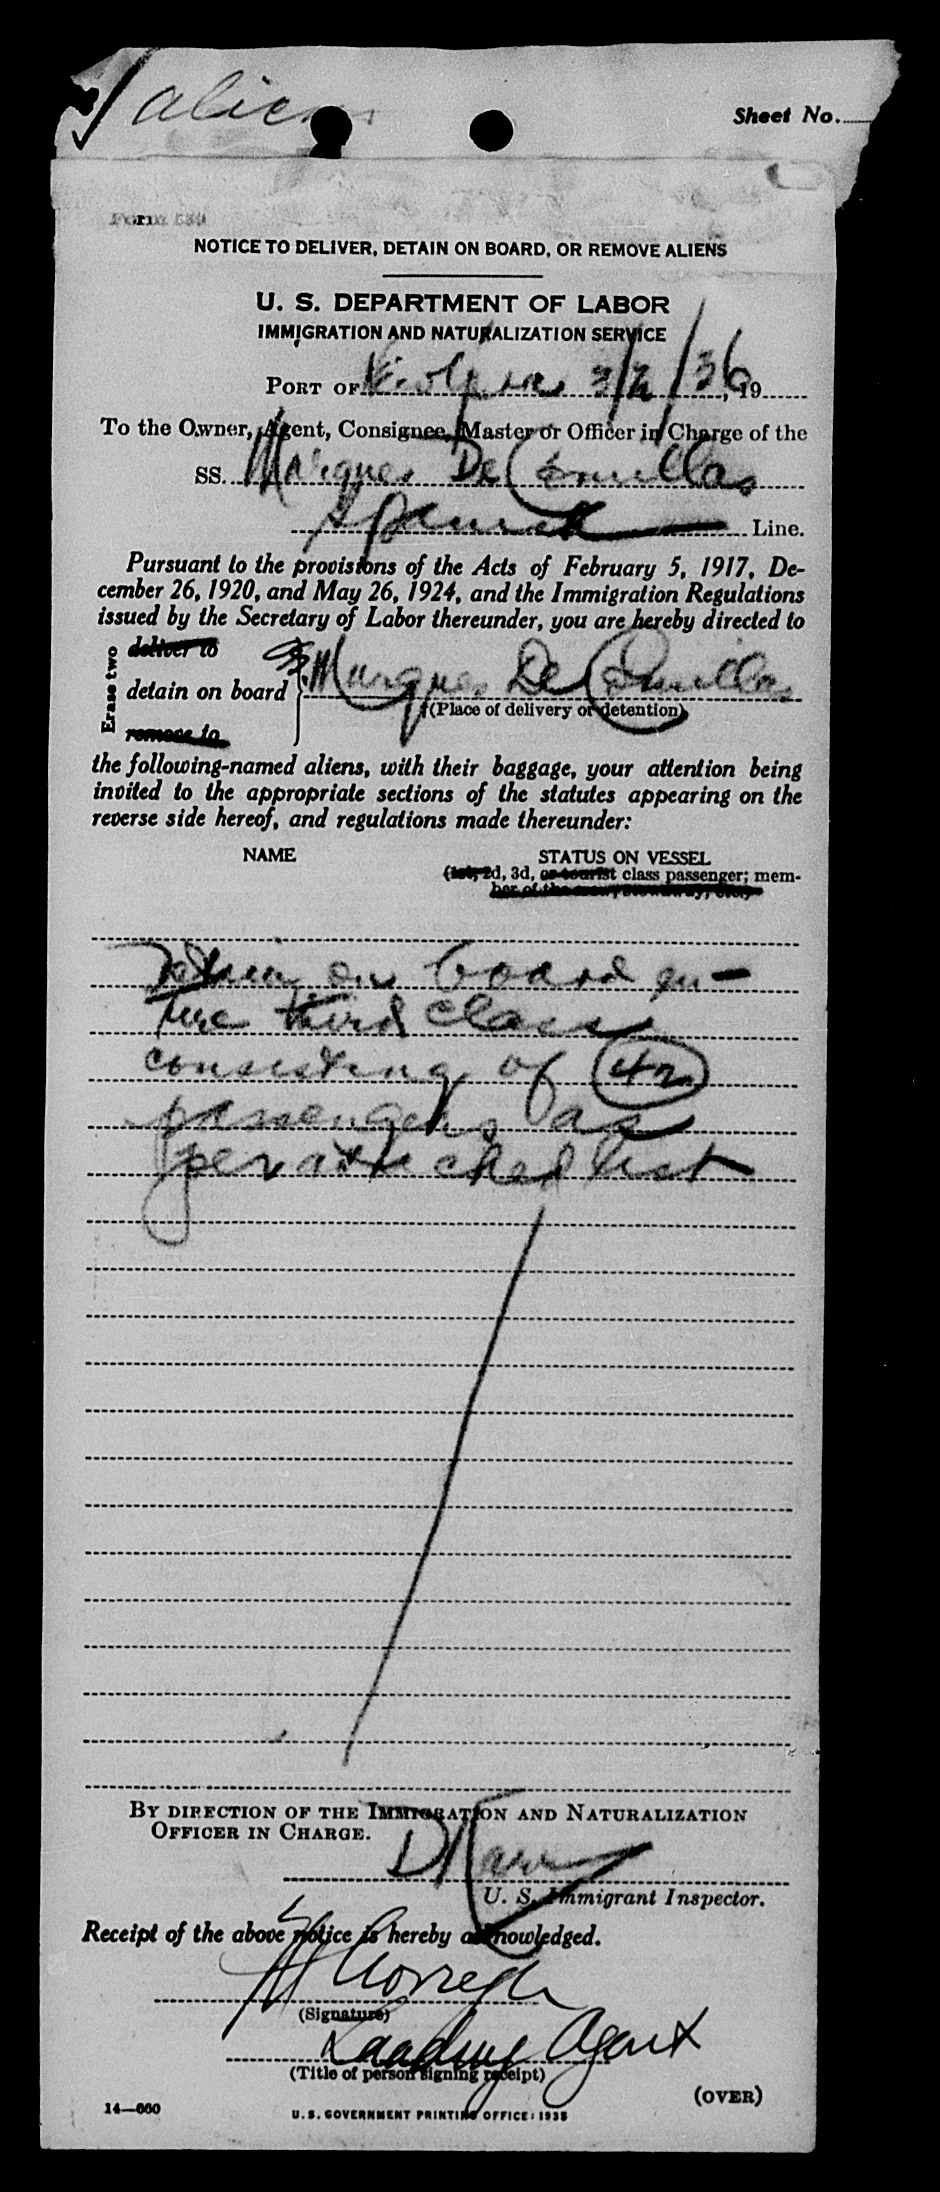 alien
Sheet No.
Form 539
NOTICE TO DELIVER, DETAIN ON BOARD, OR REMOVE ALIENS
U. S. DEPARTMENT OF LABOR
IMMIGRATION AND NATURALIZATION SERVICE
PORT OF 3/2/36, 19
To the Owner, Agent, Consignee, Master or Officer in Charge of the
SS. Marques De Comillas
Spanish Line.
Pursuant to the provisions of the Acts of February 5, 1917, De-
cember 26, 1920, and May 26, 1924, and the Immigration Regulations
issued by the Secretary of Labor thereunder, you are hereby directed to
Erase two
deliver to
detain on board SS. Marques De Comillas
(Place of delivery or detention)
remove to
the following-named aliens, with their baggage, your attention being
invited to the appropriate sections of the statutes appearing on the
reverse side hereof, and regulations made thereunder:
NAME STATUS ON VESSEL
(1st, 2d, 3d, or tourist class passenger; mem-
ber of the crew, stowaway, etc.)
Detain on board en-
tire third class
consisting of 42
passengers as
per attached list
BY DIRECTION OF THE IMMIGRATION AND NATURALIZATION
OFFICER IN CHARGE.
U. S. Immigrant Inspector.
Receipt of the above notice is hereby acknowledged.
(Signature)
Landing Agent
(Title of person signing receipt)
(OVER)
14—660
U. S. GOVERNMENT PRINTING OFFICE: 1935